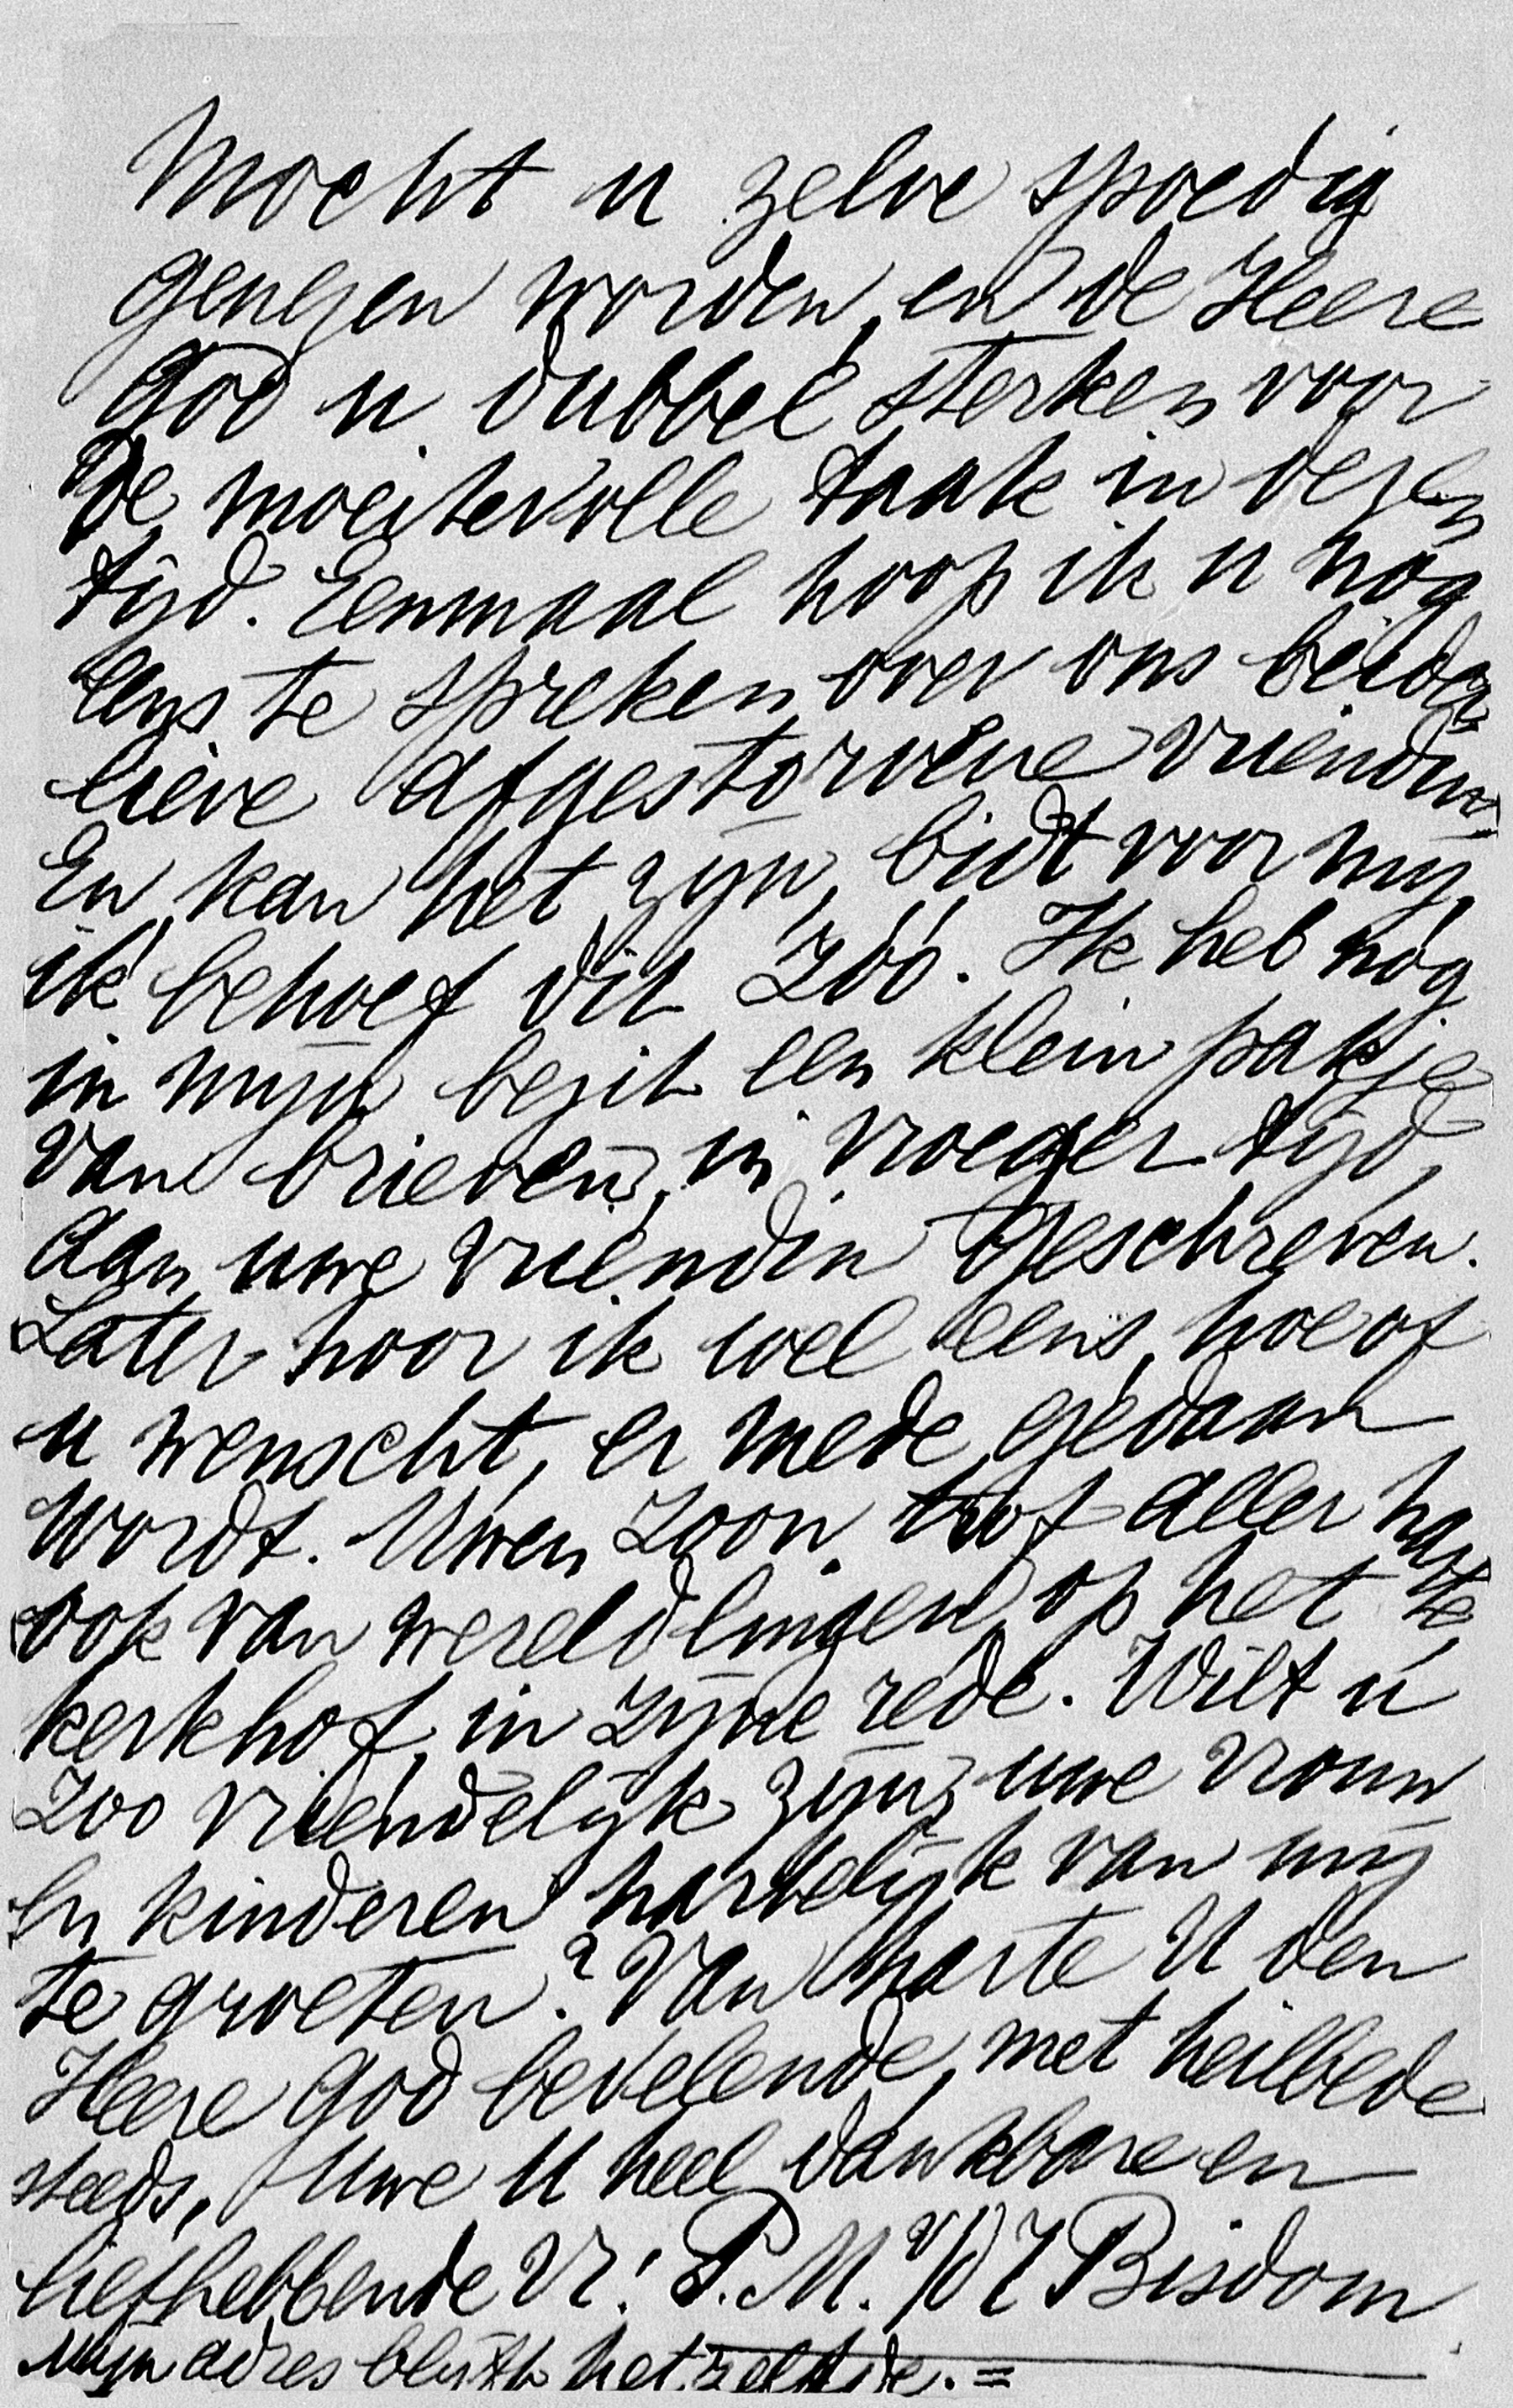 Mocht u zelve spoedig
genezen worden, en de Heere
God u dubbel sterken voor
de moeitevolle taak in dezen
tijd. Eenmaal hoop ik u nog
eens te spreken over ons beider
lieve afgestorvene vriendin,
En kan het zijn, bidt voor mij,
ik behoef dit zóó. Ik heb nog
in mijn bezit een klein pakje
van brieven, in vroeger tijd,
aan uwe vriendin geschreven.
Later hoor ik wel eens, hoe of
u wenscht, er mede gedaan
wordt. Uwen Zoon trof aller harte
ook van wereldlingen op het
kerkhof, in zijne rede. Wilt u
zoo vriendelijk zijn, uwe vrouw
en kinderen hartelijk van mij
te groeten? Van harte U den
Heere God bevelende, met heilbede
steeds, Uwe U heel dankbare en
liefhebbende Vr: P. M. Bisdom
Mijn adres blijft hetzelfde. =